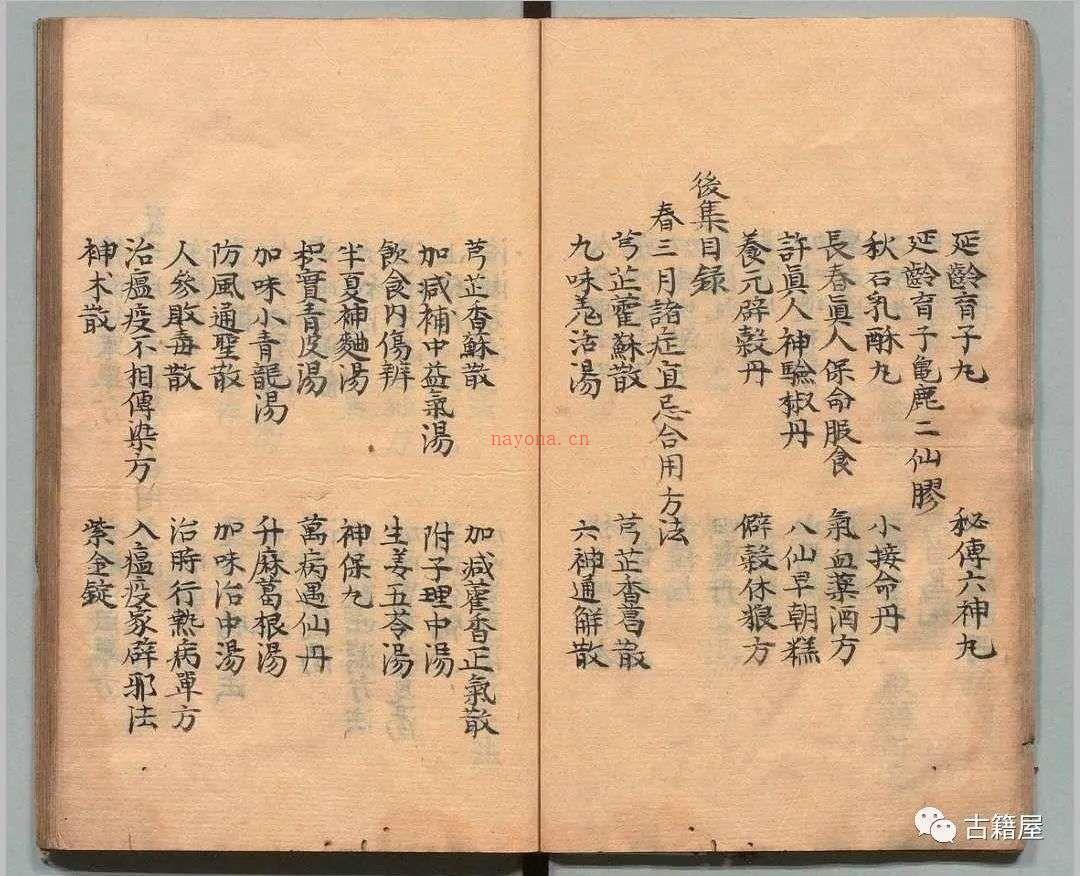 延齡育子丸 秘傳六神丸
延齡育子龜鹿二仙膠
秋石乳酥丸 小接命丹
長春眞人保命服食 氣血藥酒方
許眞人神驗椒丹 八仙早朝糕
養元辟穀丹 僻穀休粮方
後集目録
春三月諸症宜忌合用方法
芎芷藿蘇散 芎芷香葛散
九味羌活湯 六神通解散
芎芷香蘇散 加減藿香正氣散
加減補中益氣湯 附子理中湯
飲食內傷辨 生姜五苓湯
半夏神麯湯 神保丸
枳實青皮湯 萬病遇仙丹
加味小青龍湯 升麻葛根湯
防風通聖散 加味治中湯
人參敗毒散 治時行熱病單方
治瘟疫不相傳染方 入瘟疫家辟邪法
神术散 紫金錠
nayona.cn
古籍屋